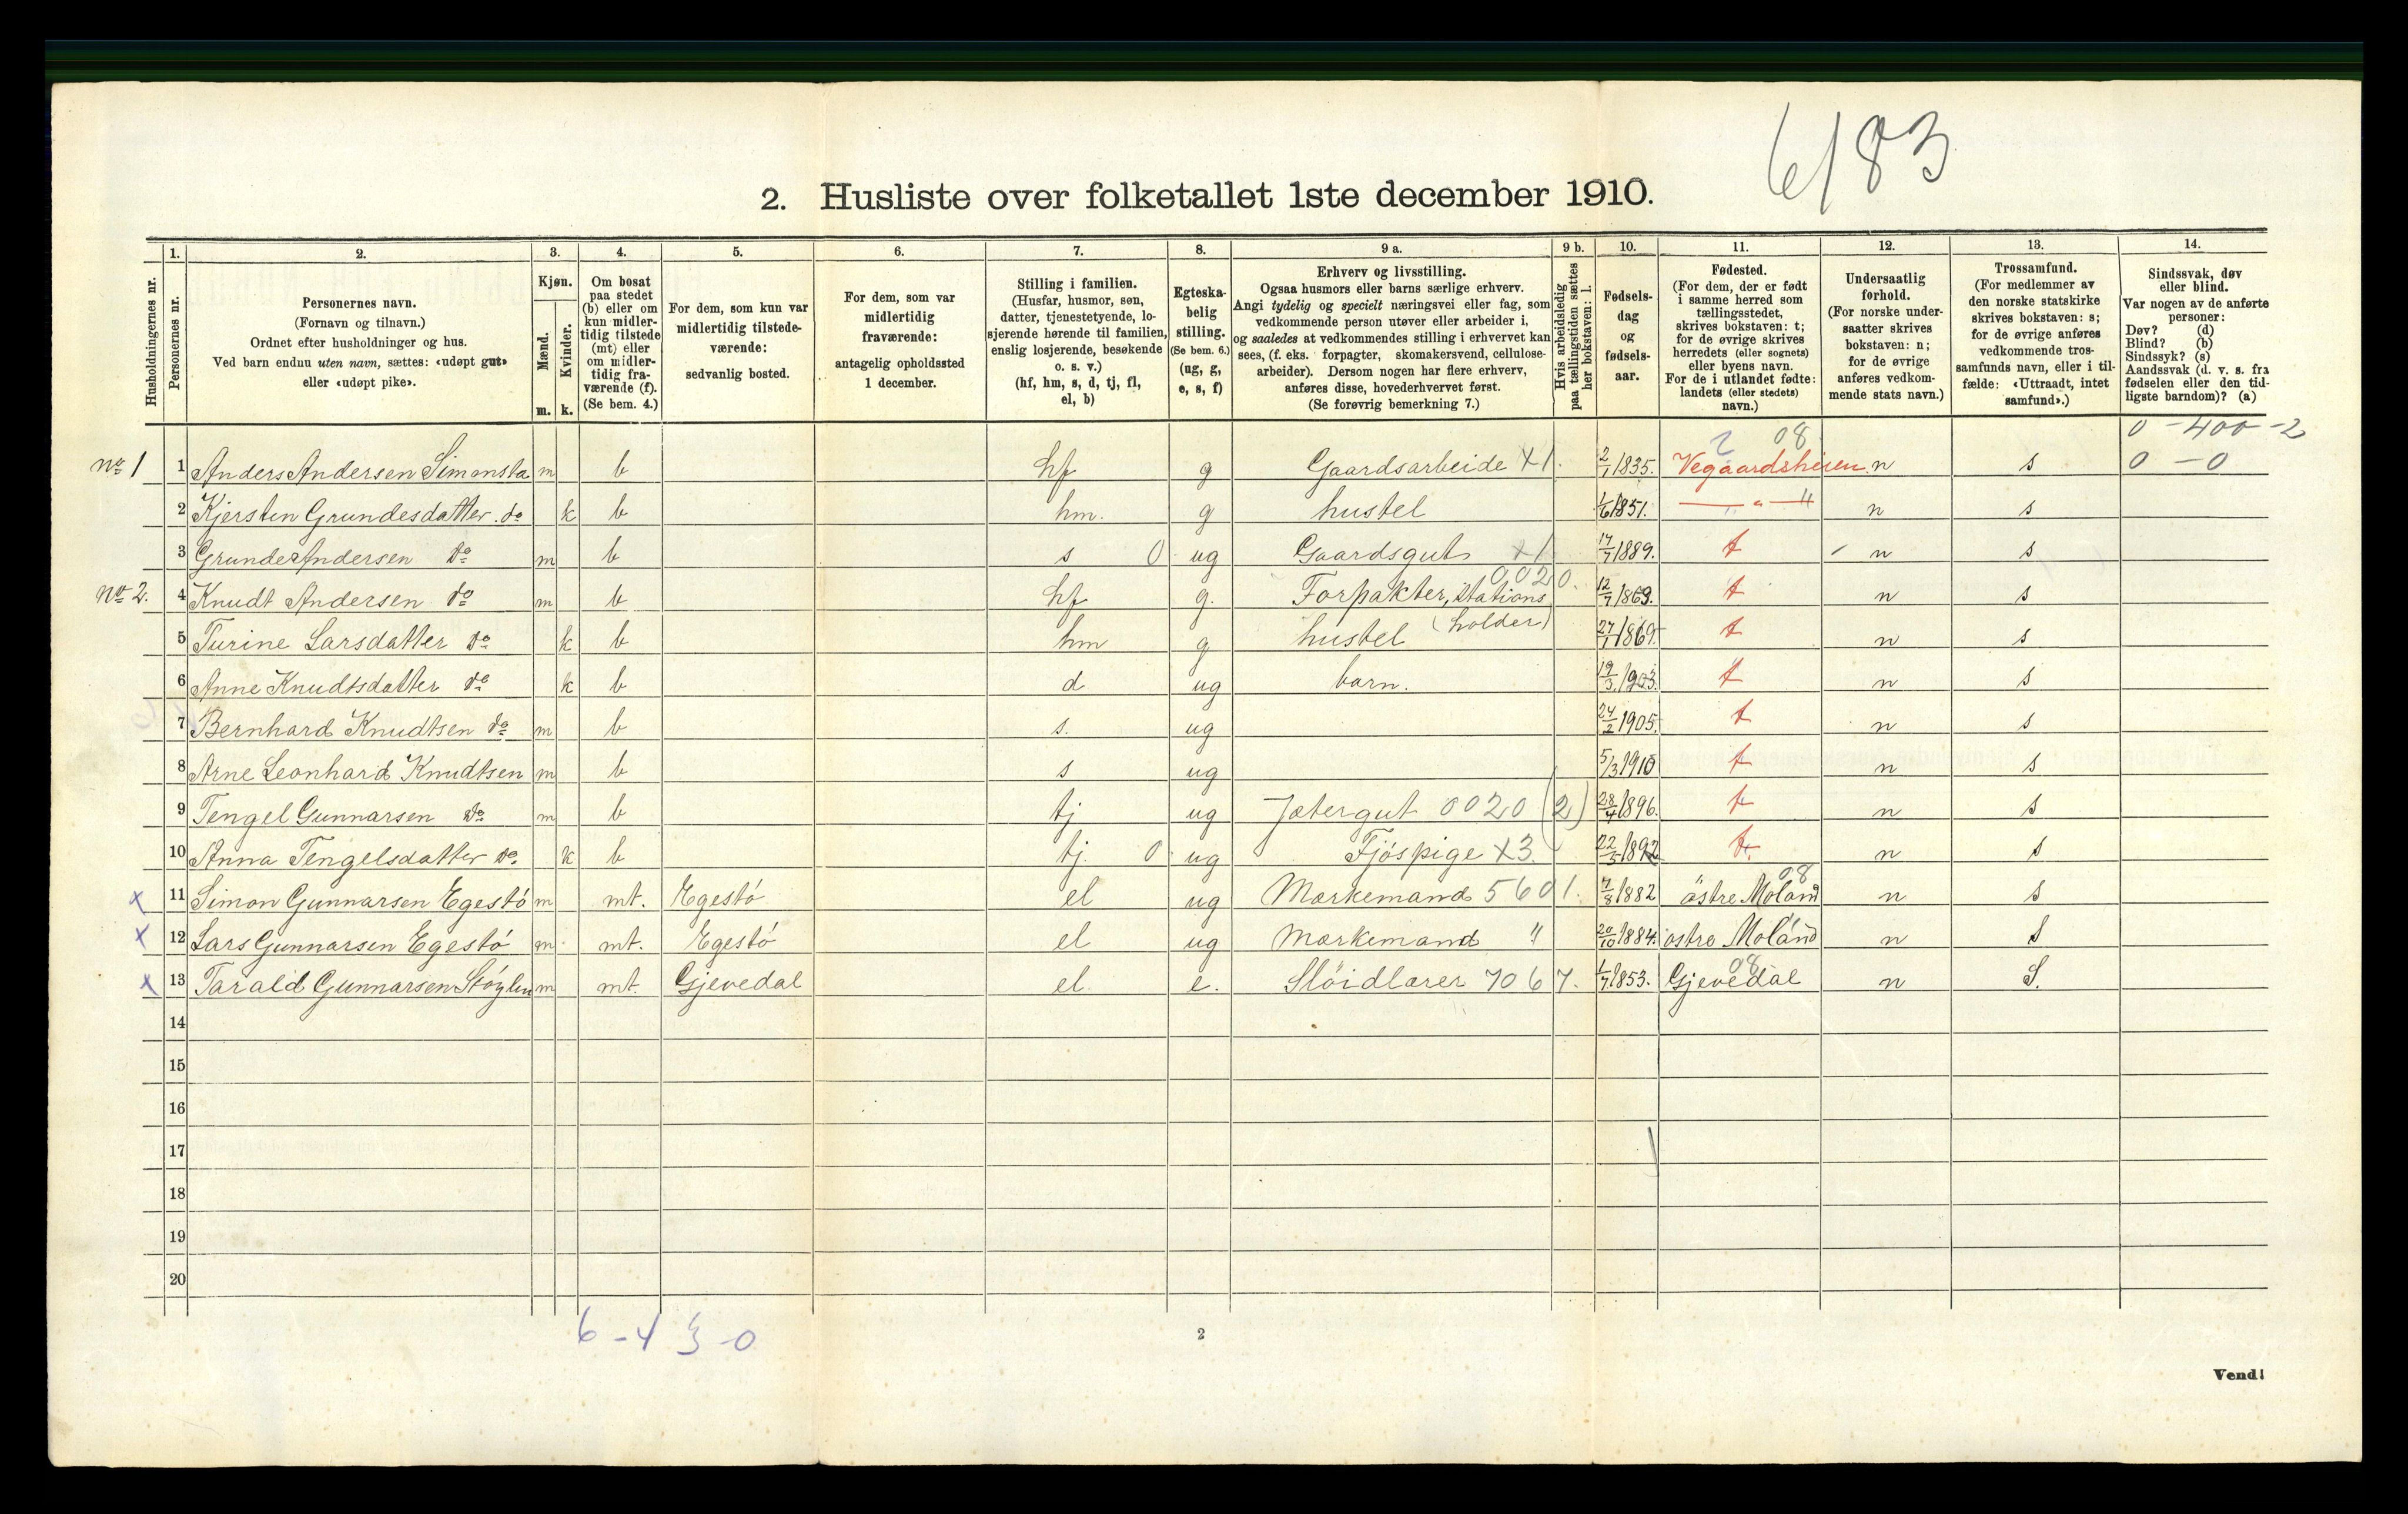 6/83
2. Husliste over folketallet 1ste december 1910.
Husholdningernes nr.
1. Personernes nr.
2. Personernes navn. (Fornavn og tilnavn.) Ordnet efter husholdninger og hus. Ved barn endnu uten navn, sættes: «udøpt gut» eller «udøpt pike».
3. Kjøn. Mænd. m. Kvinder. k.
4. Om bosat paa stedet (b) eller om kun midlertidig tilstede (mt) eller om midlertidig fraværende (f). (Se bem. 4.)
5. For dem, som kun var midlertidig tilstedeværende: sedvanlig bosted.
6. For dem, som var midlertidig fraværende: antagelig opholdssted 1 december.
7. Stilling i familien. (Husfar, husmor, søn, datter, tjenestetyende, losjerende hørende til familien, enslig losjerende, besøkende o. s. v.) (hf, hm, s, d, tj, fl, el, b)
8. Egteskabelig stilling. (Se bem. 6.) (ug, g, e, s, f)
9 a. Erhverv og livsstilling. Ogsaa husmors eller barns særlige erhverv. Angi tydelig og specielt næringsvei eller fag, som vedkommende person utøver eller arbeider i, og saaledes at vedkommendes stilling i erhvervet kan sees, (f. eks. forpagter, skomakersvend, cellulosearbeider). Dersom nogen har flere erhverv, anføres disse, hovederhvervet først. (Se forøvrig bemerkning 7.)
9 b. Hvis arbeidsledig paa tællingstiden sættes her bokstaven: l.
10. Fødselsdag og fødselsaar.
11. Fødested. (For dem, der er født i samme herred som tællingsstedet, skrives bokstaven: t; for de øvrige skrives herredets (eller sognets) eller byens navn. For de i utlandet fødte: landets (eller stedets) navn.)
12. Undersaatlig forhold. (For norske undersaatter skrives bokstaven: n; for de øvrige anføres vedkommende stats navn.)
13. Trossamfund. (For medlemmer av den norske statskirke skrives bokstaven: s; for de øvrige anføres vedkommende trossamfunds navn, eller i tilfælde: «Uttraadt, intet samfund».)
14. Sindssvak, døv eller blind. Var nogen av de anførte personer: Døv? (d) Blind? (b) Sindssyk? (s) Aandssvak (d. v. s. fra fødselen eller den tidligste barndom)? (a)
08 0 - 400 - 2
No 1 1 Anders Andersen Simonsta m b hf g Gaardsarbeide X1. 2/1 1835. Vegaardsheien n s 0 - 0
2 Kjersten Grundesdatter do k b hm. g hustel 1/6 1851. — " — n s
3 Grunde Andersen do m b s 0 ug Gaardsgut X1 17/7 1889. t n s
No 2. 4 Knudt Andersen do m b hf g. Forpakter, Stations 0020. 12/7 1869. t n s
(holder)
5 Turine Larsdatter do k b hm g hustel 27/1 1869. t n s
6 Anne Knudtsdatter do k b d ug barn. 19/3 1903. t n s
7 Bernhard Knudtsen do m b s. ug 24/2 1905. t n s
8 Arne Leonhard Knudtsen m b s ug 5/3 1910 t n s
9 Tengel Gunnarsen do m b tj ug Jætergut 0020 (2) 28/4 1896. t n s
10 Anna Tengelsdatter do k b tj. 0 ug Fjøspige X3. 22/3 1892 t. n s
08
x 11 Simon Gunnarsen Egestö m mt. Egestö el ug Mærkemand 5601. 7/8 1882 östre Moland n s
x 12 Lars Gunnarsen Egestö m mt. Egestö el ug Mærkemand " 20/10 1884. östre Moland n s
08
x 13 Tarald Gunnarsen Stöylen m mt. Gjevedal el. e. Slöidlærer 7067. 1/7 1853. Gjevedal n S.
14
15
16
17
18
19
20
6 - 4 3 - 0
2
Vend!